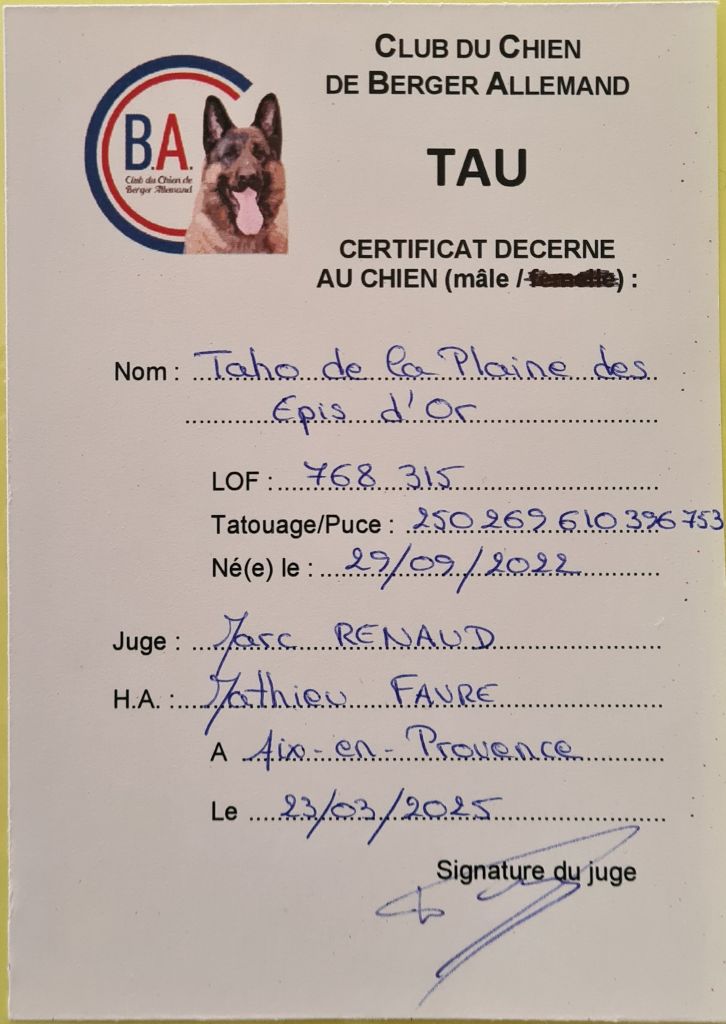 CLUB DU CHIEN
DE BERGER ALLEMAND
B.A.
Club du Chien de
Berger Allemand
TAU
CERTIFICAT DECERNE
AU CHIEN (mâle / femelle) :
Nom : Taho de la Plaine des
Epis d'Or
LOF : 768 315
Tatouage/Puce : 250 269 610 396 753
Né(e) le : 29/09/2022
Juge : Marc RENAUD
H.A. : Mathieu FAVRE
A Aix-en-Provence
Le 23/03/2025
Signature du juge